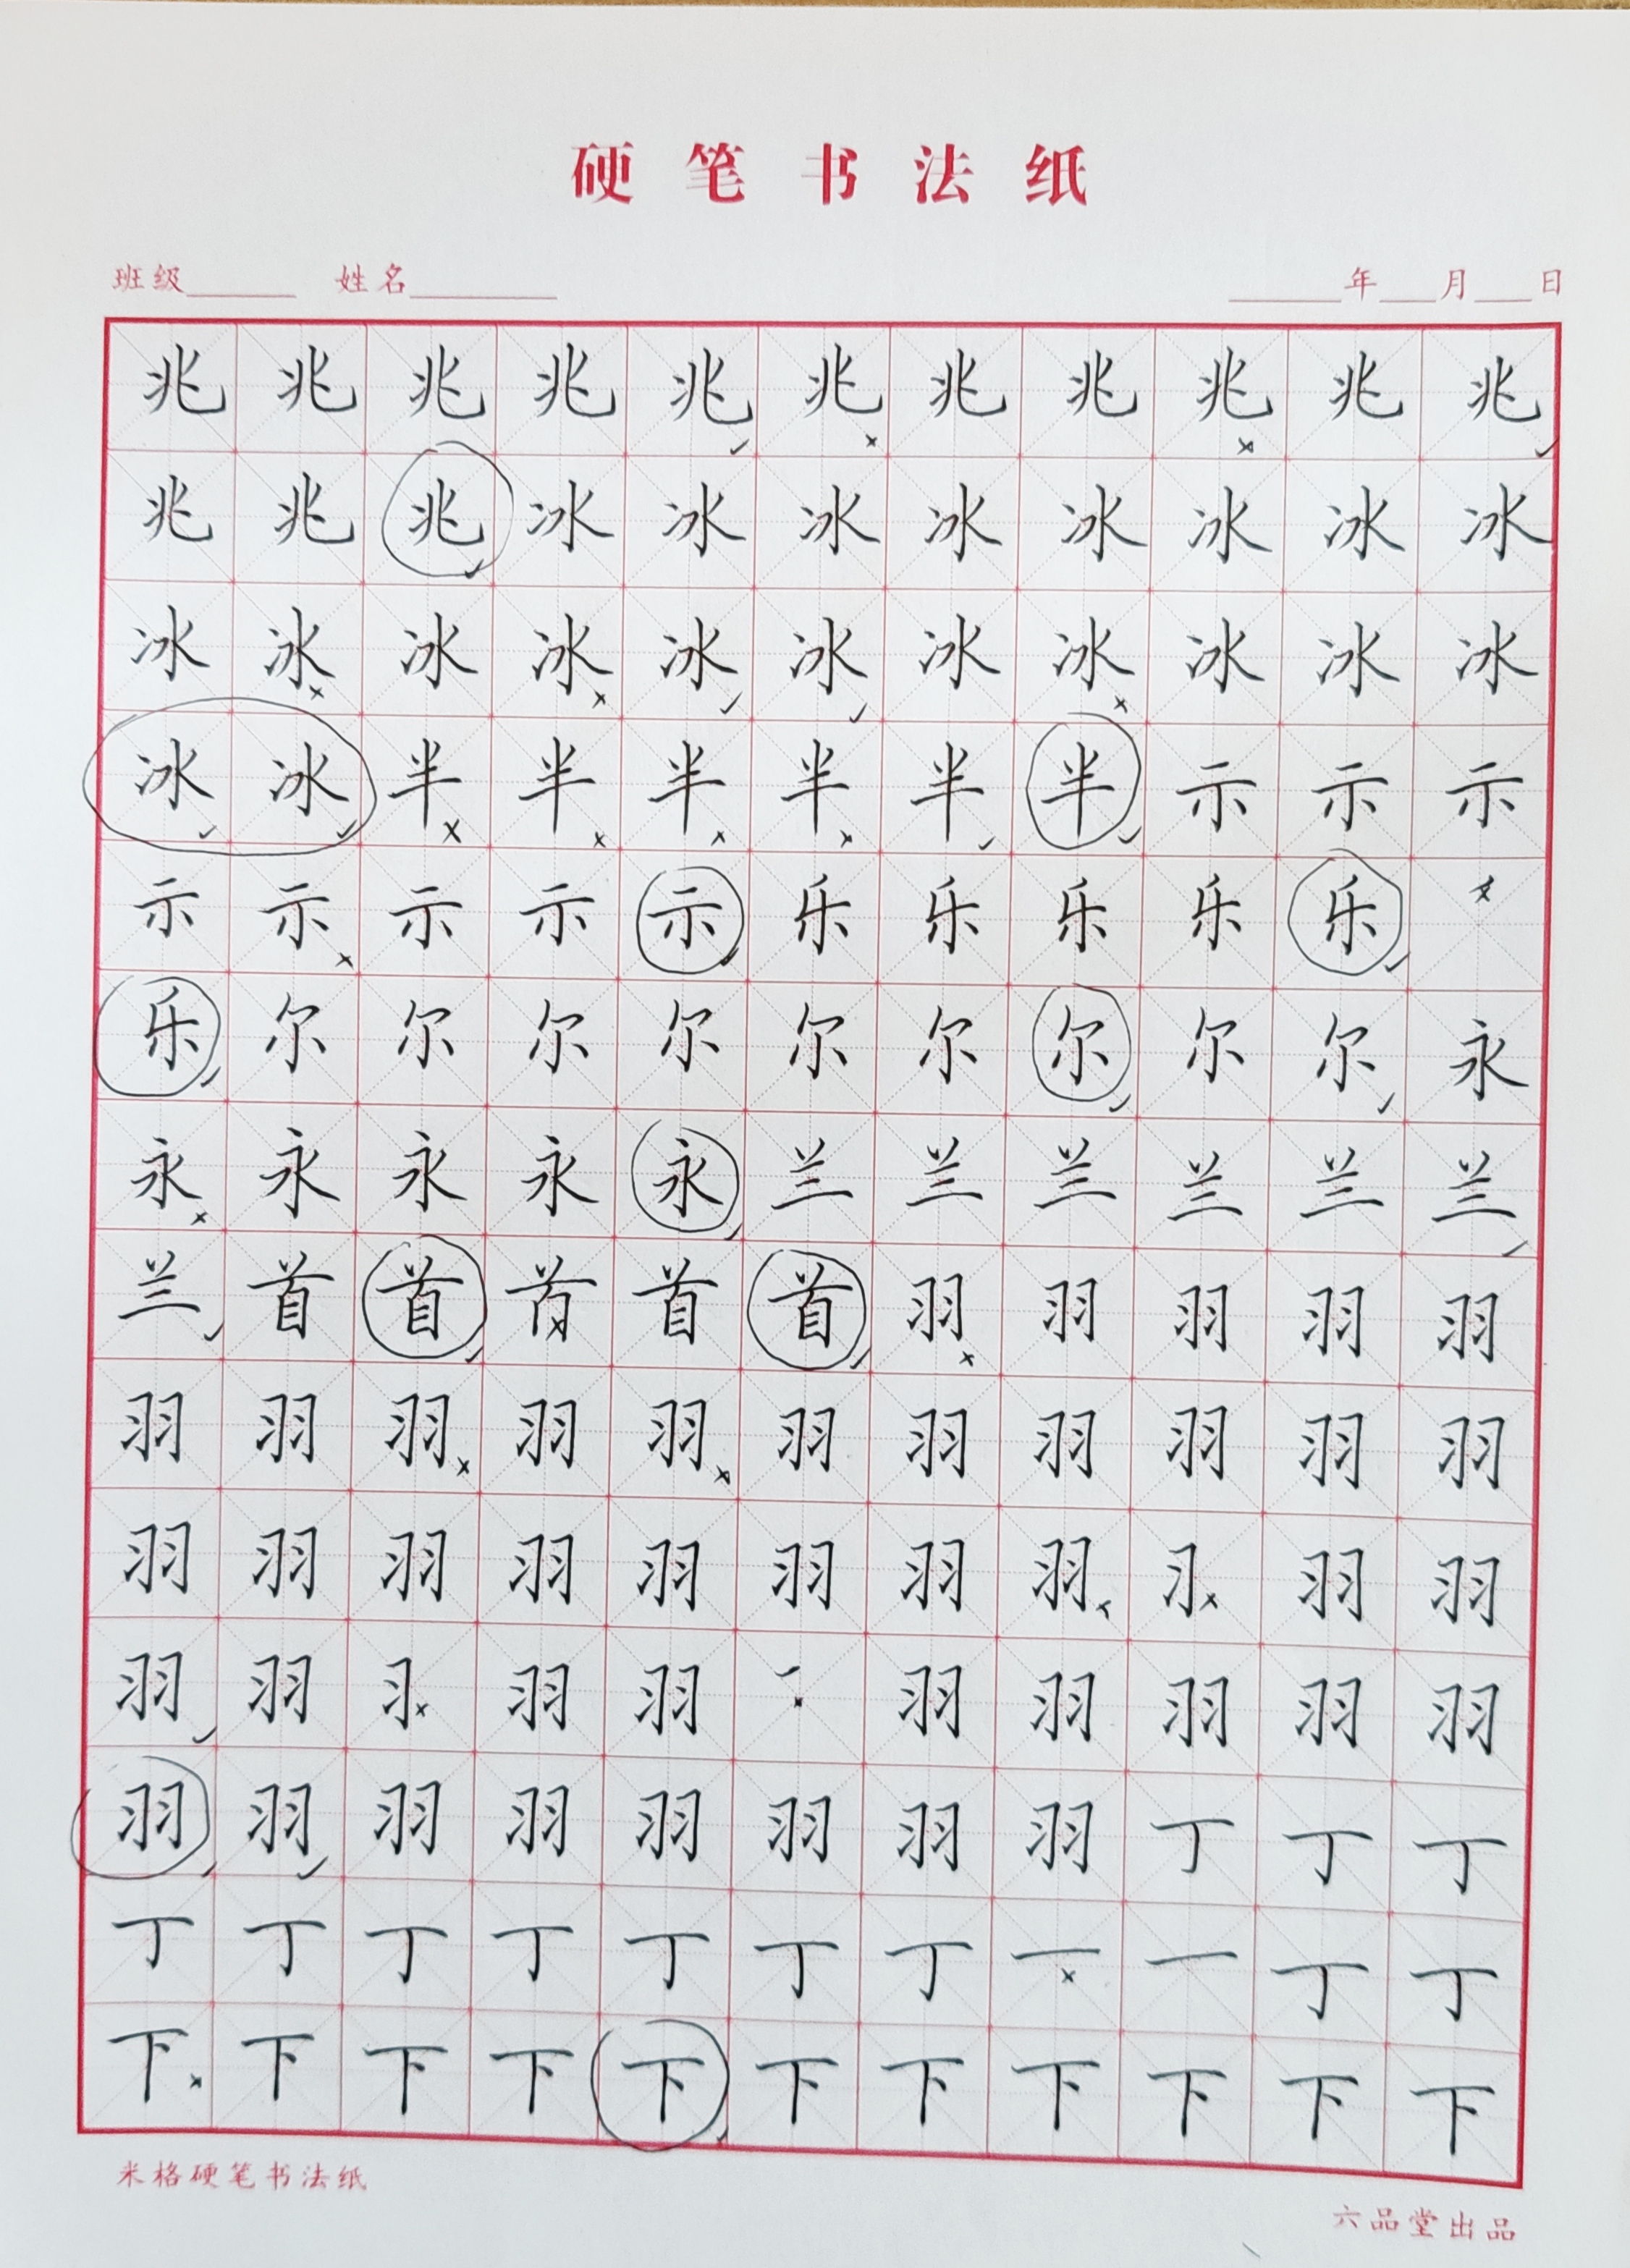 硬笔书法纸
班级______ 姓名________ ______年___月___日
兆兆兆兆兆兆兆兆兆兆兆
兆兆兆冰冰冰冰冰冰冰冰
冰冰冰冰冰冰冰冰冰冰冰
冰冰半半半半半半示示示
示示示示示乐乐乐乐乐
乐尔尔尔尔尔尔尔尔尔永
永永永永永兰兰兰兰兰兰
兰首首首首羽羽羽羽羽
羽羽羽羽羽羽羽羽羽羽羽
羽羽羽羽羽羽羽羽习羽羽
羽羽习羽羽羽羽羽羽羽
羽羽羽羽羽羽羽羽丁丁丁
丁丁丁丁丁丁丁一一丁丁
下下下下下下下下下下下
米格硬笔书法纸
六品堂出品